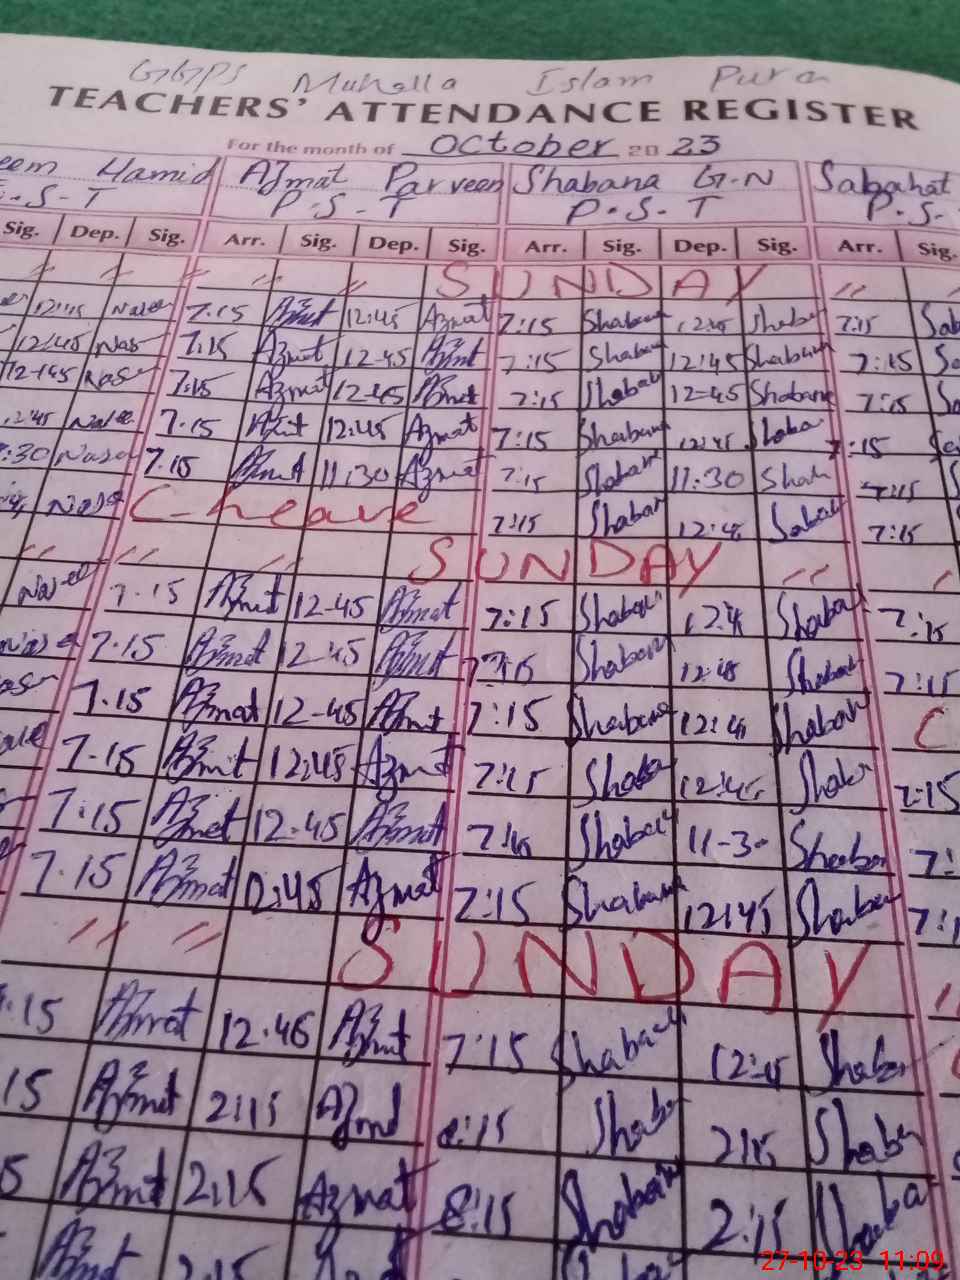 GGPS Muhalla Islam Pura
TEACHERS' ATTENDANCE REGISTER
For the month of October 2023
Hamid Azmat Parveen Shabana G-N Sabahat
S-T P.S-T P.S.T P.S-
Sig. Dep. Sig. Arr. Sig. Dep. Sig. Arr. Sig. Dep. Sig. Arr. Sig.
" " " " " " SUNDAY "
12:45 Nasee 7.15 Azmat 12:45 Azmat 7:15 Shabana Shaban 7:15 Sab
12:45 Nas 7.15 Azmat 12-45 Azmat 7:15 Shabana 12:45 Shabana 7:15 Sa
12-45 Nase 7:15 Azmat 12-45 Azmat 7:15 Shaban 12-45 Shabana 7:15
2:45 Nasee 7.15 Azmat 12:45 Azmat 7:15 Shabana 12:45 Shaba 7:15
:30 Nase 7.15 Azmat 11:30 Azmat 7:15 Shabana 11:30 Shab 7:15
Nase C-leave 7:15 Shaban 12:4 7:15
" " " SUNDAY "
Nasee 7.15 Azmat 12-45 Azmat 7:15 Shaban 12:4 Shaban 7:15
7.15 Azmat 12-45 Azmat 7:15 Shabana 12:45 Shabab 7:15
7.15 Azmat 12-45 Azmat 7:15 Shabana 12:45 Shaban C
7-15 Azmat 12:45 Azmat 7:15 Shaba 12:45 Shaba 7:15
7:15 Azmat 12-45 Azmat 7:15 Shaban 11-30 Shaban 7:
7.15 Azmat 12:45 Azmat 7:15 Shabana 12:45 Shaban 7:1
" " SUNDAY "
:15 Azmat 12.45 Azmat 7:15 Shabana 12:45 Shaban
15 Azmat 2:15 Azmat 8:15 Shaban 2:15 Shaban
5 Azmat 2:15 Azmat 8:15 Shabana 2:15 Shaba
Azmat 2:15
27-10-23 11:09